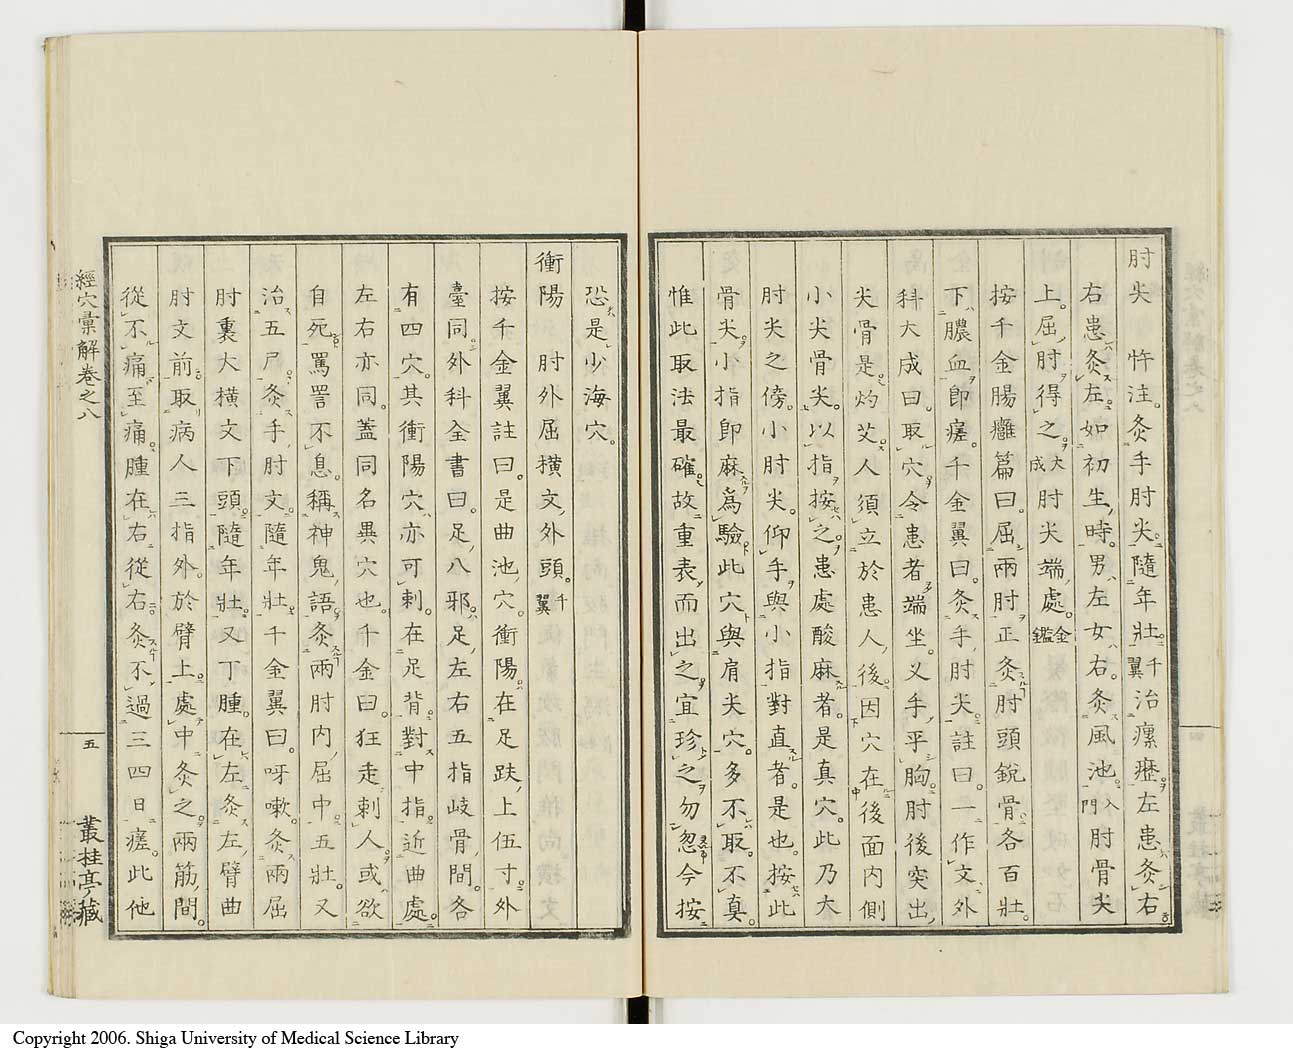 肘尖　忤注。灸手肘尖隨年壯。千翼治瘰癧左患灸右
右患灸左。如初生時。男左女右。灸風池。入門肘骨尖
上。屈肘得之。大成肘尖端處。金鑑
按千金腸癰篇曰。屈兩肘正灸肘頭銳骨各百壯。
下膿血卽瘥。千金翼曰。灸手肘尖。註曰。一作文。外
科大成曰。取穴令患者端坐。叉手平胸。肘後突出
尖骨是。灼艾人須立於患人後。因穴在後面内側
小尖骨尖。以指按之。患處酸麻者。是真穴。此乃大
肘尖之傍。小肘尖。仰手與小指對直者。是也。按此
骨尖。小指卽麻爲驗。此穴與肩尖穴。多不取。不真。
惟此取法最確。故重表而出之。宜珍之勿忽。今按
恐是少海穴。
衝陽　肘外屈横文外頭。千翼
按千金翼註曰。是曲池穴。衝陽。在足趺上伍寸。外
臺同。外科全書曰。足八邪。足左右五指岐骨間。各
有四穴。其衝陽穴。亦可刺。在足背。對中指。近曲處。
左右亦同。蓋同名異穴也。千金曰。狂走刺人。或欲
自死。罵詈不息。稱神鬼語。灸兩肘内屈中五壯。又
治五尸。灸手肘文。隨年壯。千金翼曰。呀嗽。灸兩屈
肘裏大横文下頭。隨年壯。又丁腫。在左灸左臂曲
肘文前。取病人三指外。於臂上處中灸之。兩筋間。
從不痛至痛。腫在右從右灸。不過三四日瘥。此他
經穴彙解卷之八
五
叢桂亭藏
Copyright 2006. Shiga University of Medical Science Library